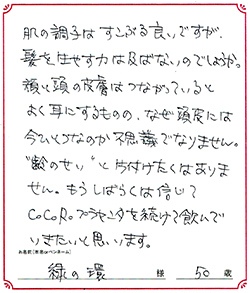 肌の調子はすこぶる良いですが、
髪を生やす力は及ばないのでしょうか。
顔と頭の皮膚はつながっていると
よく耳にするものの、なぜ頭皮には
今ひとつなのか不思議でなりません。
"齢のせい"と片付けたくはありま
せん。もうしばらくは信じて
CoCoRoプラセンタを続けて飲んで
いきたいと思います。
お名前(本名orペンネーム)
緑の環 様 50歳